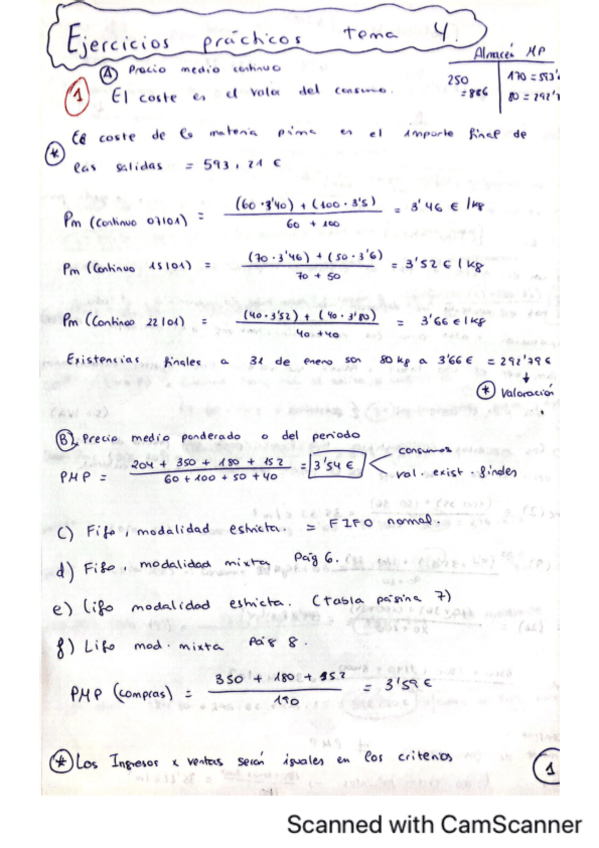 Ejercicios prácticos tema 4.
Almacén MP
250 = 886
170 = 593'
80 = 292'
A Precio medio continuo
1 El coste es el valor del consumo.
* El coste de la materia prima es el importe final de
las salidas = 593,21 €
Pm (Continuo 07/01) = (60·3'40) + (100·3'5) / 60 + 100 = 3'46 € / kg
Pm (Continuo 15/01) = (70·3'46) + (50·3'6) / 70 + 50 = 3'52 € / kg
Pm (Continuo 22/01) = (40·3'52) + (40·3'80) / 40 + 40 = 3'66 € / kg
Existencias finales a 31 de enero son 80 kg a 3'66 € = 292'79 €
* Valoración
B) Precio medio ponderado o del periodo
PMP = 204 + 350 + 180 + 152 / 60 + 100 + 50 + 40 = 3'54 €
consumos
val. exist. finales
c) Fifo, modalidad estricta. = FIFO normal.
d) Fifo, modalidad mixta Pág 6.
e) Lifo modalidad estricta. (tabla página 7)
f) Lifo mod. mixta Pág 8.
PMP (compras) = 350 + 180 + 152 / 190 = 3'59 €
* Los Ingresos x ventas serán iguales en los criterios
1
Scanned with CamScanner